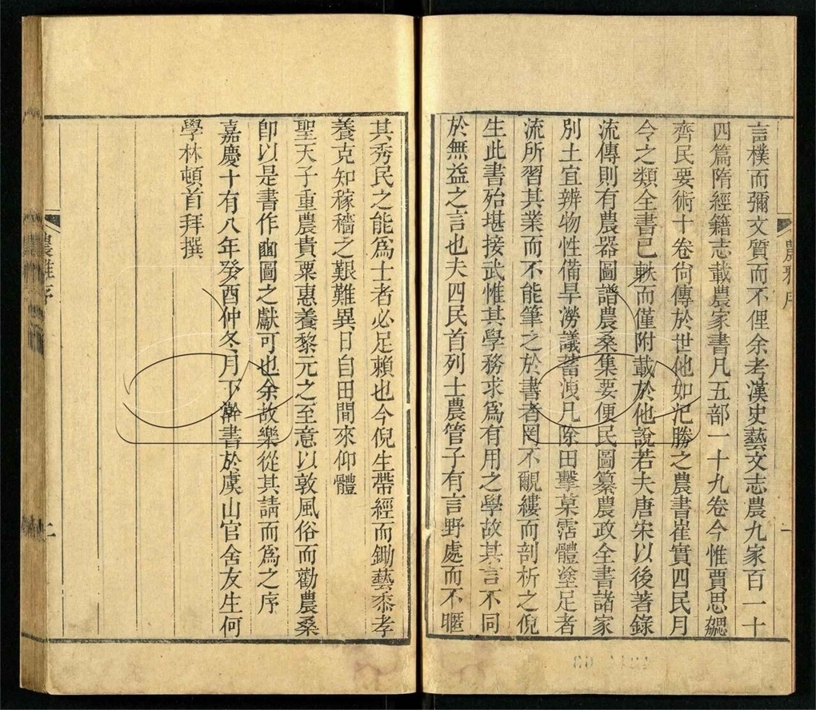 言樸而彌文質而不俚余考漢史藝文志農九家百一十
四篇隋經籍志載農家書凡五部一十九卷今惟賈思勰
齊民要術十卷尙傳於世他如氾勝之農書崔實四民月
令之類全書已軼而僅附載於他說若夫唐宋以後著錄
流傳則有農器圖譜農桑集要便民圖纂農政全書諸家
別土宜辨物性備旱澇議蓄洩凡除田擊菒霑體塗足者
流所習其業而不能筆之於書者罔不覼縷而剖析之倪
生此書殆堪接武惟其學務求爲有用之學故其言不同
於無益之言也夫四民首列士農管子有言野處而不暱
其秀民之能爲士者必足賴也今倪生帶經而鋤藝黍孝
養克知稼穡之艱難異日自田間來仰體
聖天子重農貴粟惠養黎元之至意以敦風俗而勸農桑
卽以是書作豳圖之獻可也余故樂從其請而爲之序
嘉慶十有八年癸酉仲冬月下澣書於虞山官舍友生何
學林頓首拜撰
農雅序
二